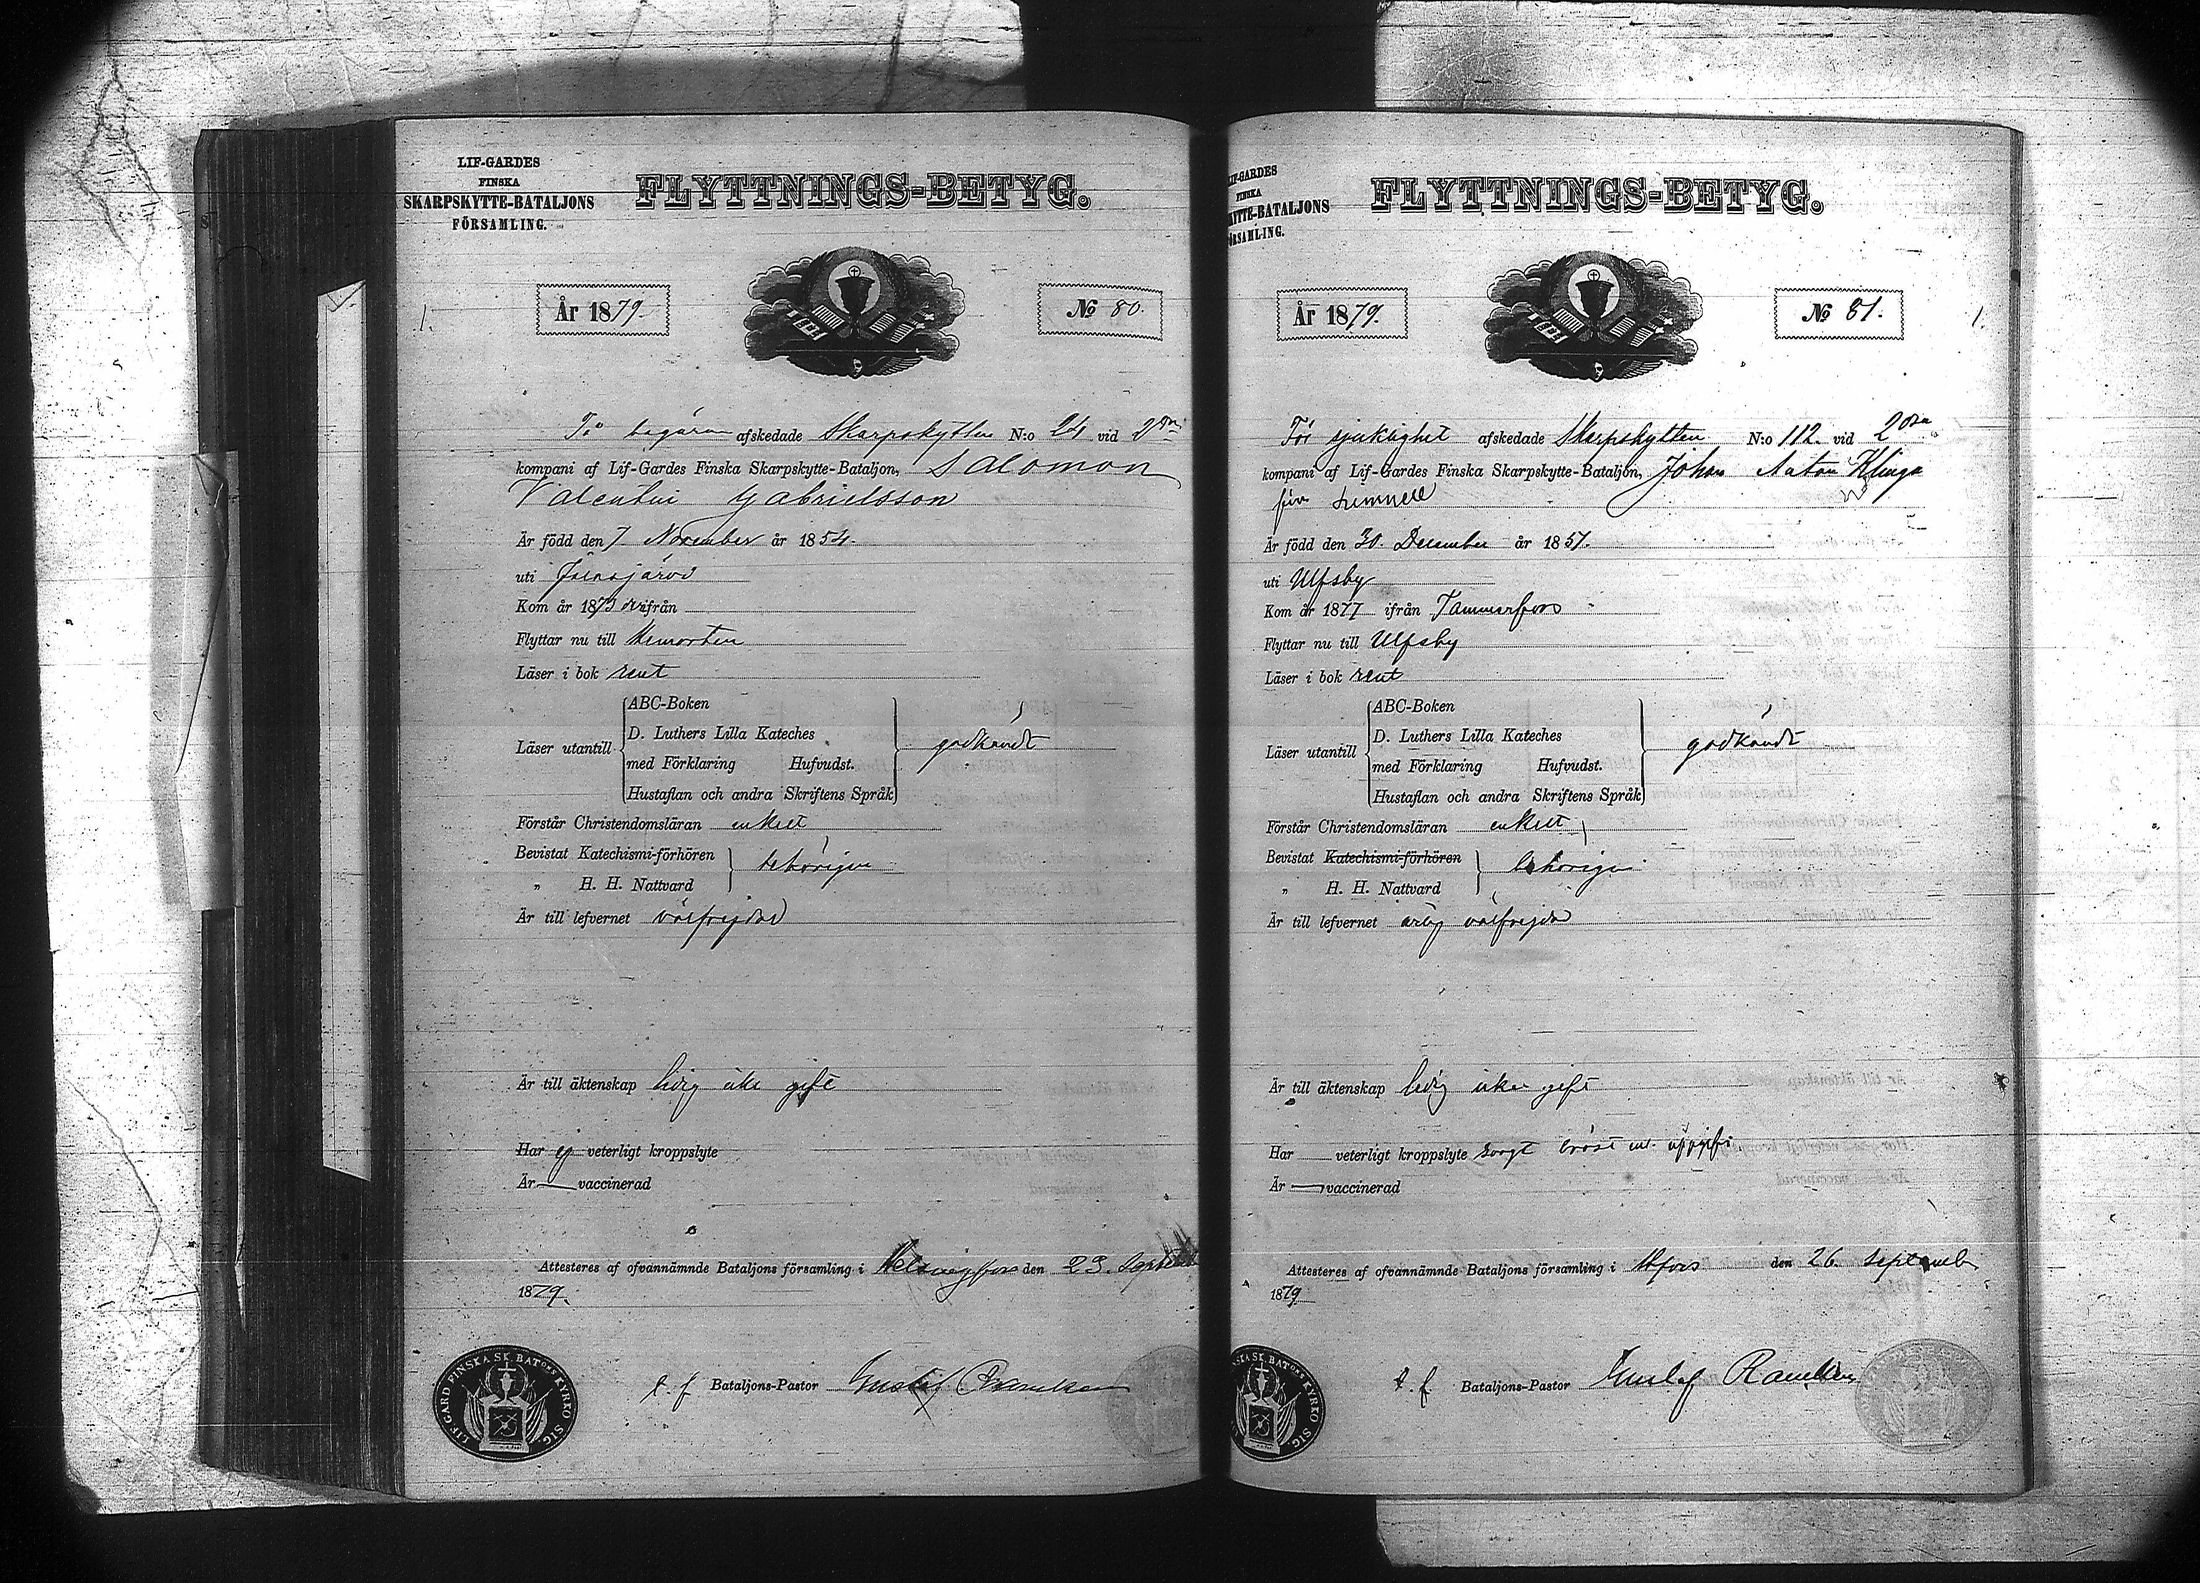 LIF-GARDES
FINSKA
SKARPSKYTTE-BATALJONS
FÖRSAMLING.
FLYTTNINGS-BETYG.
1.
År 1879.
No 80.
På begäran afskedade Skarpskytten N:o 24 vid 2dra
kompani af Lif-Gardes Finska Skarpskytte-Bataljon, Salomon
Valentin Gabrielsson
Är född den 7 November år 1854.
uti
Kom år 1873 ifrån
Flyttar nu till
Läser i bok rent
ABC-Boken
D. Luthers Lilla Kateches
Läser utantill godkändt
med Förklaring Hufvudst.
Hustaflan och andra Skriftens Språk
Förstår Christendomsläran enkelt
Bevistat Katechismi-förhören behörigen
„ H. H. Nattvard
Är till lefvernet välfrejdad
Är till äktenskap ledig icke gift
Har ej veterligt kroppslyte
Är — vaccinerad
Attesteres af ofvannämnde Bataljons församling i Helsingfors den 23. September
1879.
t. f. Bataljons-Pastor Gustaf
LIF. GARD FINSKA SK. BATONS KYRKO SIG.
LIF-GARDES
FINSKA
SKYTTE-BATALJONS
FÖRSAMLING.
FLYTTNINGS-BETYG.
År 1879.
No 81.
1.
För sjuklighet afskedade Skarpskytten N:o 112. vid 2dra
kompani af Lif-Gardes Finska Skarpskytte-Bataljon, Johan Anton Klinga
Är född den 30. December år 1857.
uti Ulfsby
Kom år 1877 ifrån Tammerfors
Flyttar nu till Ulfsby
Läser i bok rent
ABC-Boken
D. Luthers Lilla Kateches
Läser utantill godkändt
med Förklaring Hufvudst.
Hustaflan och andra Skriftens Språk
Förstår Christendomsläran enkelt
Bevistat Katechismi-förhören behörigen
„ H. H. Nattvard
Är till lefvernet ärlig välfrejdad
Är till äktenskap ledig icke gift
Har — veterligt kroppslyte svagt bröst enl. uppgift
Är — vaccinerad
Attesteres af ofvannämnde Bataljons församling i Hfors den 26. September
1879
t. f. Bataljons-Pastor Gustaf
SKA SK. BATONS KYRKO SIG.